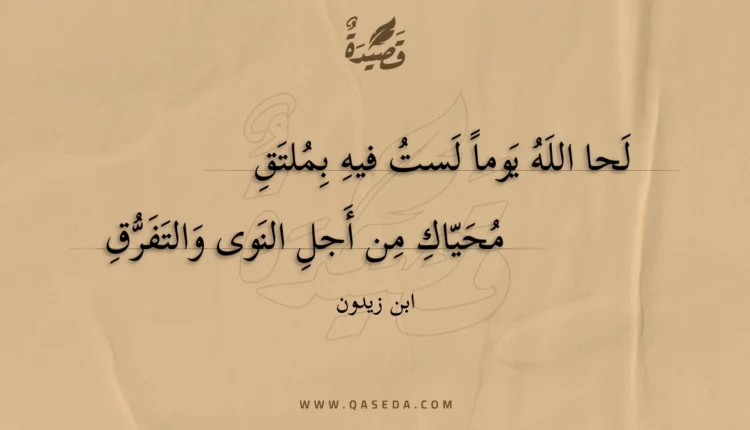 قَصِيْدَةٌ
لَحا اللَهُ يَوماً لَستُ فيهِ بِمُلتَقِ
مُحَيّاكِ مِن أَجلِ النَوى وَالتَفَرُّقِ
ابن زيدون
WWW.QASEDA.COM